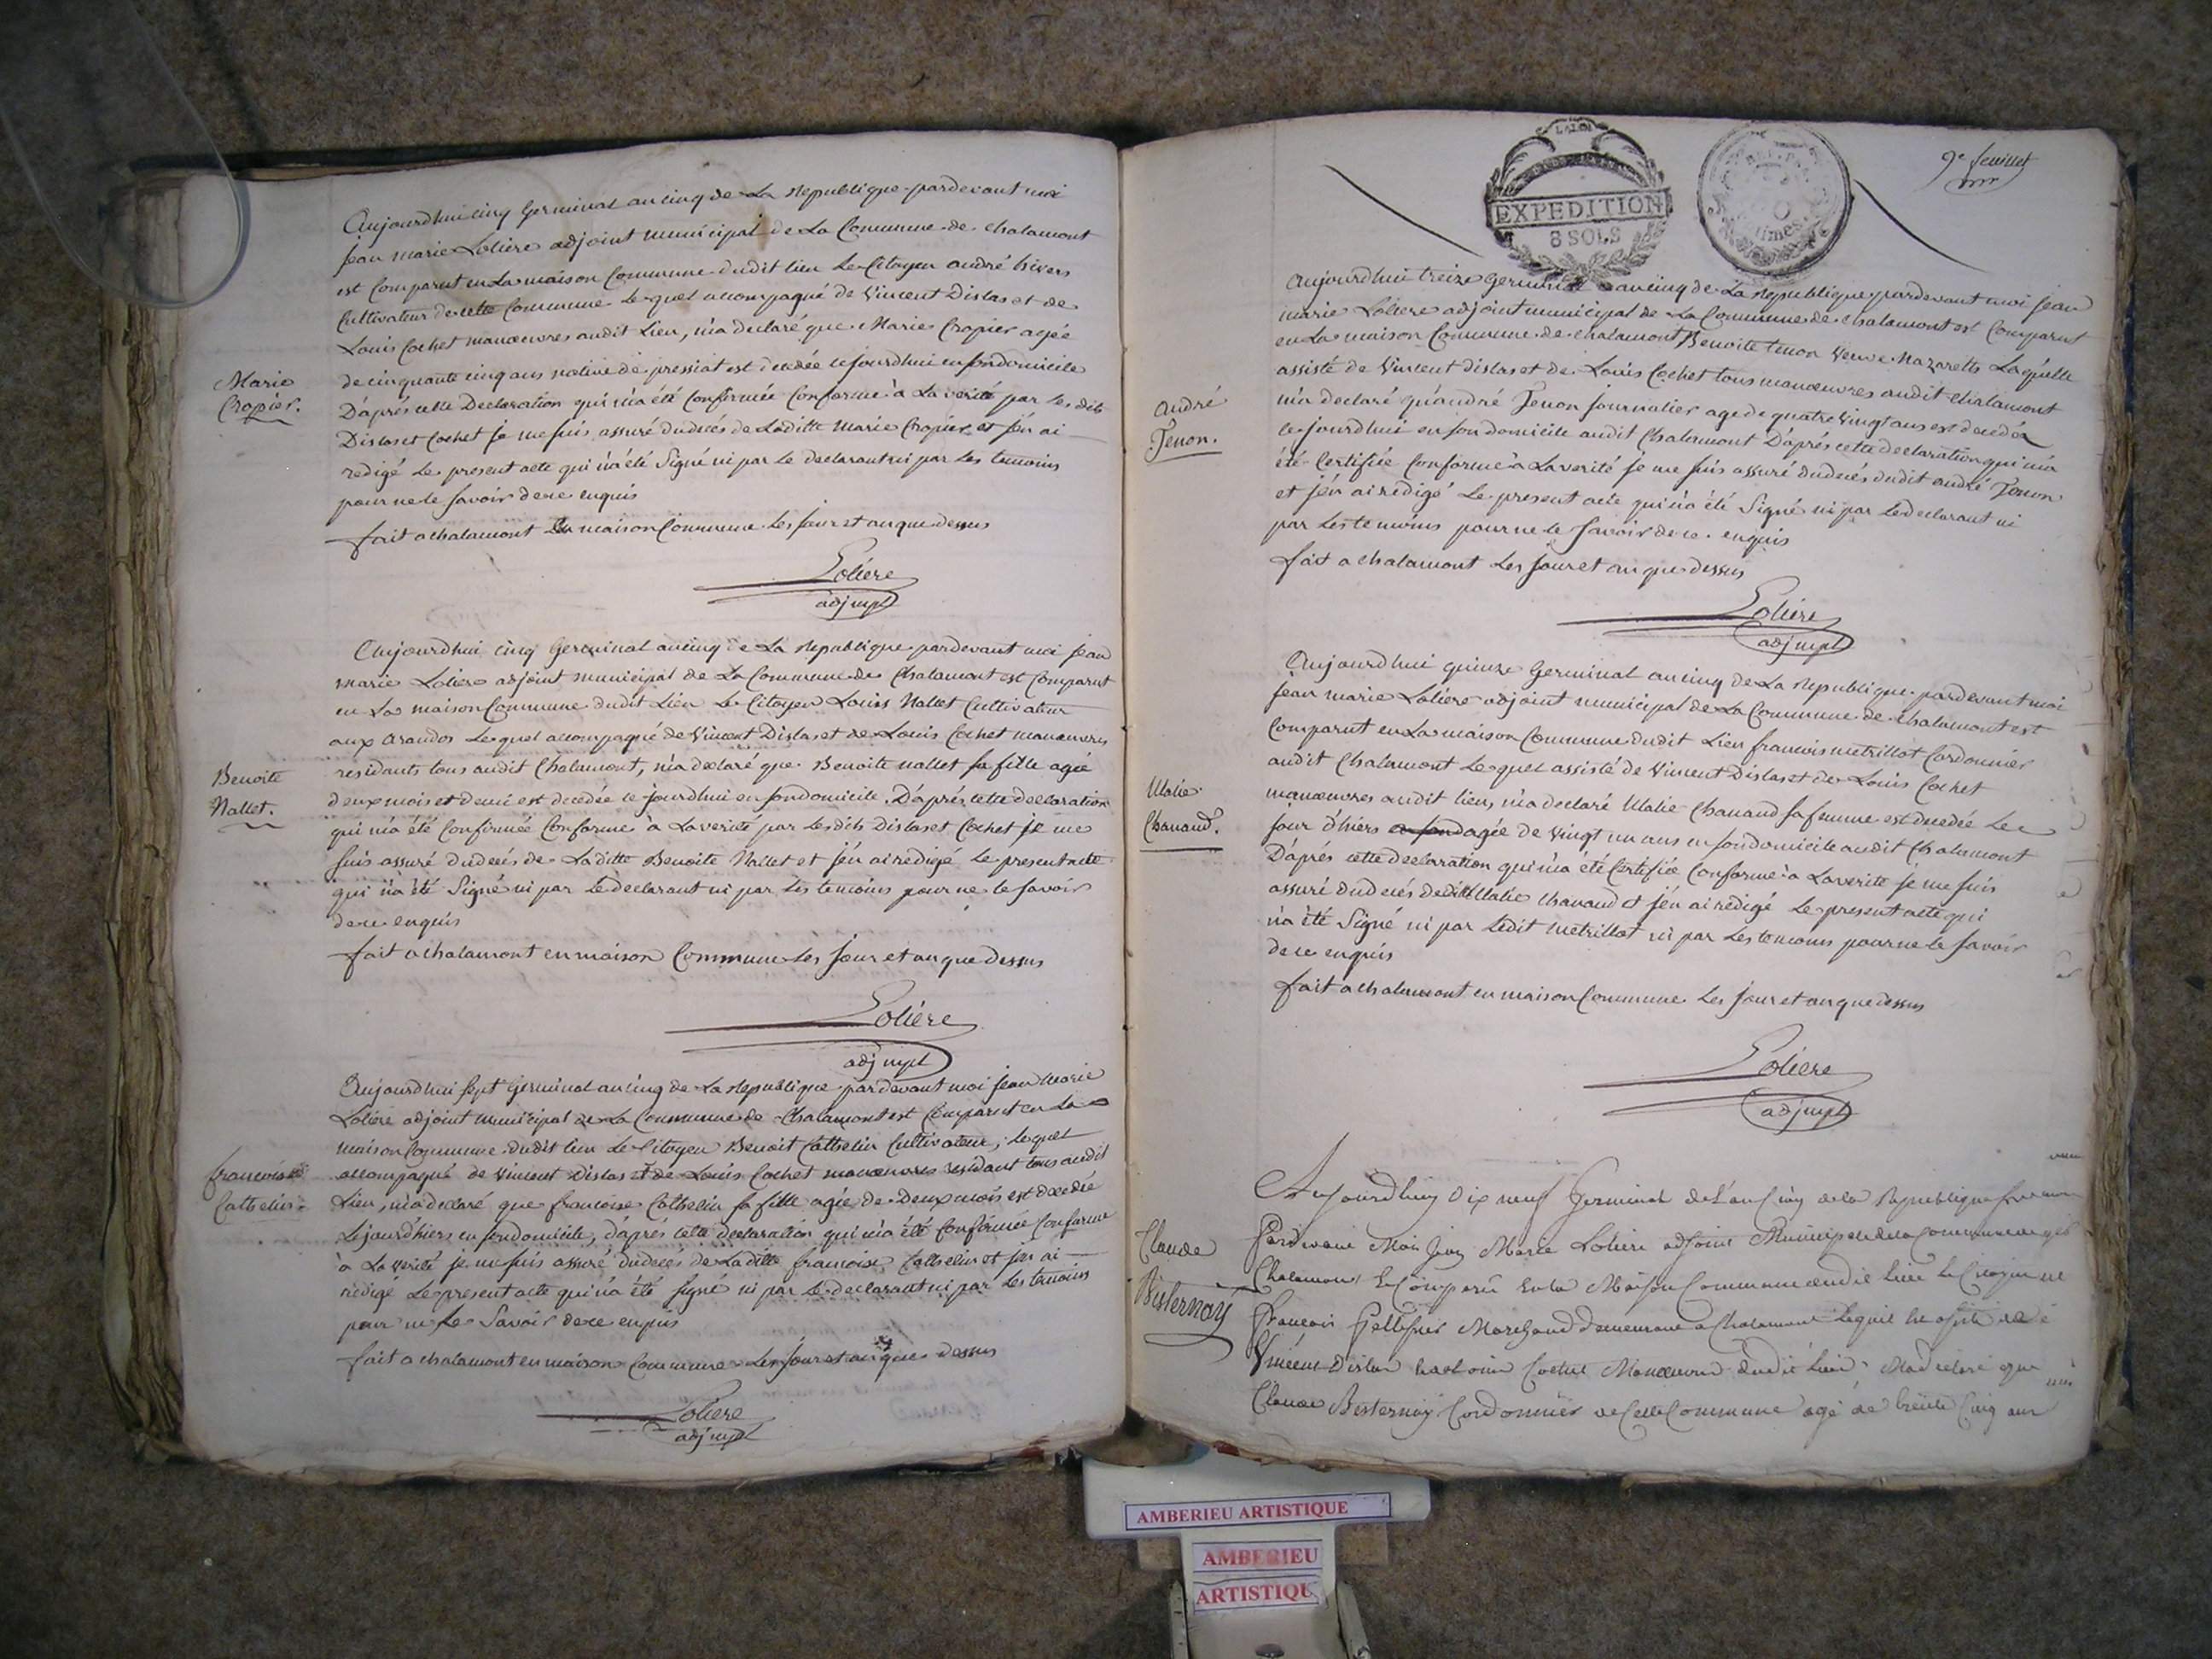 Aujourdhui cinq Germinal an cinq de La Republique pardevant moi
Jean marie Loliere adjoint municipal de La Commune de chalamont
est Comparut en La maison Commune dudit lieu Le Citoyen andré
Cultivateur de cette Commune Lequel accompagné de Vincent Dislas et de
Louis Cochet manœuvres audit Lieu, m'a declaré que Marie Cropier agée
de cinquante cinq ans native de pressiat est decedée cejourdhui en son domicile
D'aprés cette Declaration qui m'a été Confirmée Conforme à La verité par les dits
Dislas et Cochet je me suis assuré du decés de Laditte Marie Cropier et j'en ai
redigé Le present acte qui n'a été Signé ni par le declarant ni par Les temoins
pour ne le savoir de ce enquis
fait a chalamont En maison Commune Les jour et an que dessus
Loliere
adj mpl
Marie
Cropier.
Aujourdhui cinq Germinal an cinq de La Republique pardevant moi Jean
Marie Loliere adjoint municipal de La Commune de Chalamont est Comparut
en La maison Commune dudit Lieu Le Citoyen Louis Nallet Cultivateur
aux Lequel accompagné de Vincent Dislas et de Louis Cochet manœuvres
residants tous audit Chalamont, m'a declaré que Benoite Nallet sa fille agée
deux mois et demi est decedée ce jourdhui en son domicile. D'aprés cette declaration
qui m'a été Confirmée Conforme à La verité par Les dits Dislas et Cochet je me
suis assuré du decés de Laditte Benoite Nallet et j'en ai redigé Le present acte
qui n'a été Signé ni par Le declarant ni par Les temoins pour ne le savoir
de ce enquis
fait a chalamont en maison Commune Les jour et an que dessus
Loliere
adj mpl
Benoite
Nallet.
Aujourdhui sept Germinal an cinq de La Republique pardevant moi Jean Marie
Loliere adjoint municipal de La Commune de Chalamont est Comparut en La
maison Commune dudit lieu Le Citoyen Benoit Cathelin Cultivateur, lequel
accompagné de Vincent Dislas et de Louis Cochet manœuvres residant tous audit
Lieu, m'a declaré que francoise Cathelin sa fille agée de Deux mois est decedée
Le jour d'hiers en son domicile, d'aprés cette declaration qui m'a été Confirmée Conforme
à La verité je me suis assuré du decés de Laditte francoise Cathelin et j'en ai
redigé Le present acte qui n'a été signé ni par Le declarant ni par Les temoins
pour ne Le Savoir de ce enquis
fait a chalamont en maison Commune Les jour et an que dessus
Loliere
adj mpl
francoise
Cathelin.
LA LOI
EXPEDITION
8 SOLS
9e feuillet
Aujourdhui treize Germinal an cinq de La Republique pardevant moi Jean
marie Loliere adjoint municipal de La Commune de chalamont est Comparut
en La maison Commune de chalamont Benoite tenon veuve Nazareth Laquelle
assisté de Vincent dislas et de Louis Cochet tous manœuvres audit chalamont
m'a declaré qu'andré Tenon journalier age de quatre vingt ans est decedé
ce jourdhui en son domicile audit Chalamont D'aprés cette declaration qui m'a
été Certifiée Conforme à La verité je me suis assuré du decés dudit andré Tenon
et j'en ai redigé Le present acte qui n'a été Signé ni par Le declarant ni
par Les temoins pour ne le savoir de ce enquis
fait a chalamont Les jour et an que dessus
Loliere
adj mpl
andré
Tenon.
Aujourdhui quinze Germinal an cinq de La Republique pardevant moi
Jean marie Loliere adjoint municipal de La Commune de chalamont est
Comparut en La maison Commune dudit Lieu francois metrillot Cordonnier
audit Chalamont Lequel assisté de Vincent Dislas et de Louis Cochet
manœuvres audit lieu, m'a declaré Chanaud sa femme est decedée Le
jour d'hiers en son agée de vingt un ans en son domicile audit Chalamont
D'aprés cette declaration qui m'a été Certifiée Conforme à La verité je me suis
assuré du decés chanaud et j'en ai redigé Le present acte qui
n'a été Signé ni par Ledit metrillot ni par Les temoins pour ne le savoir
de ce enquis
fait a chalamont en maison Commune Les jour et an que dessus
Loliere
adj mpl
Chanaud.
Aujourdhuy Dix neuf Germinal de L'an Cinq de la Republique
Pardevant Moi Jean Marie Loliere adjoint Municipal de la Commune de
Chalamont Comparu en la Maison Commune dudit Lieu Le Citoyen
francois Pellissier Marchand demeurant a Chalamont Lequel
Vincent Dislas Cochet Manœuvre dudit Lieu, M'a declaré que
Claude Bisternay Cordonnier de Cette Commune agé de trente Cinq ans
Claude
Bisternay
AMBERIEU ARTISTIQUE
AMBERIEU
ARTISTIQU